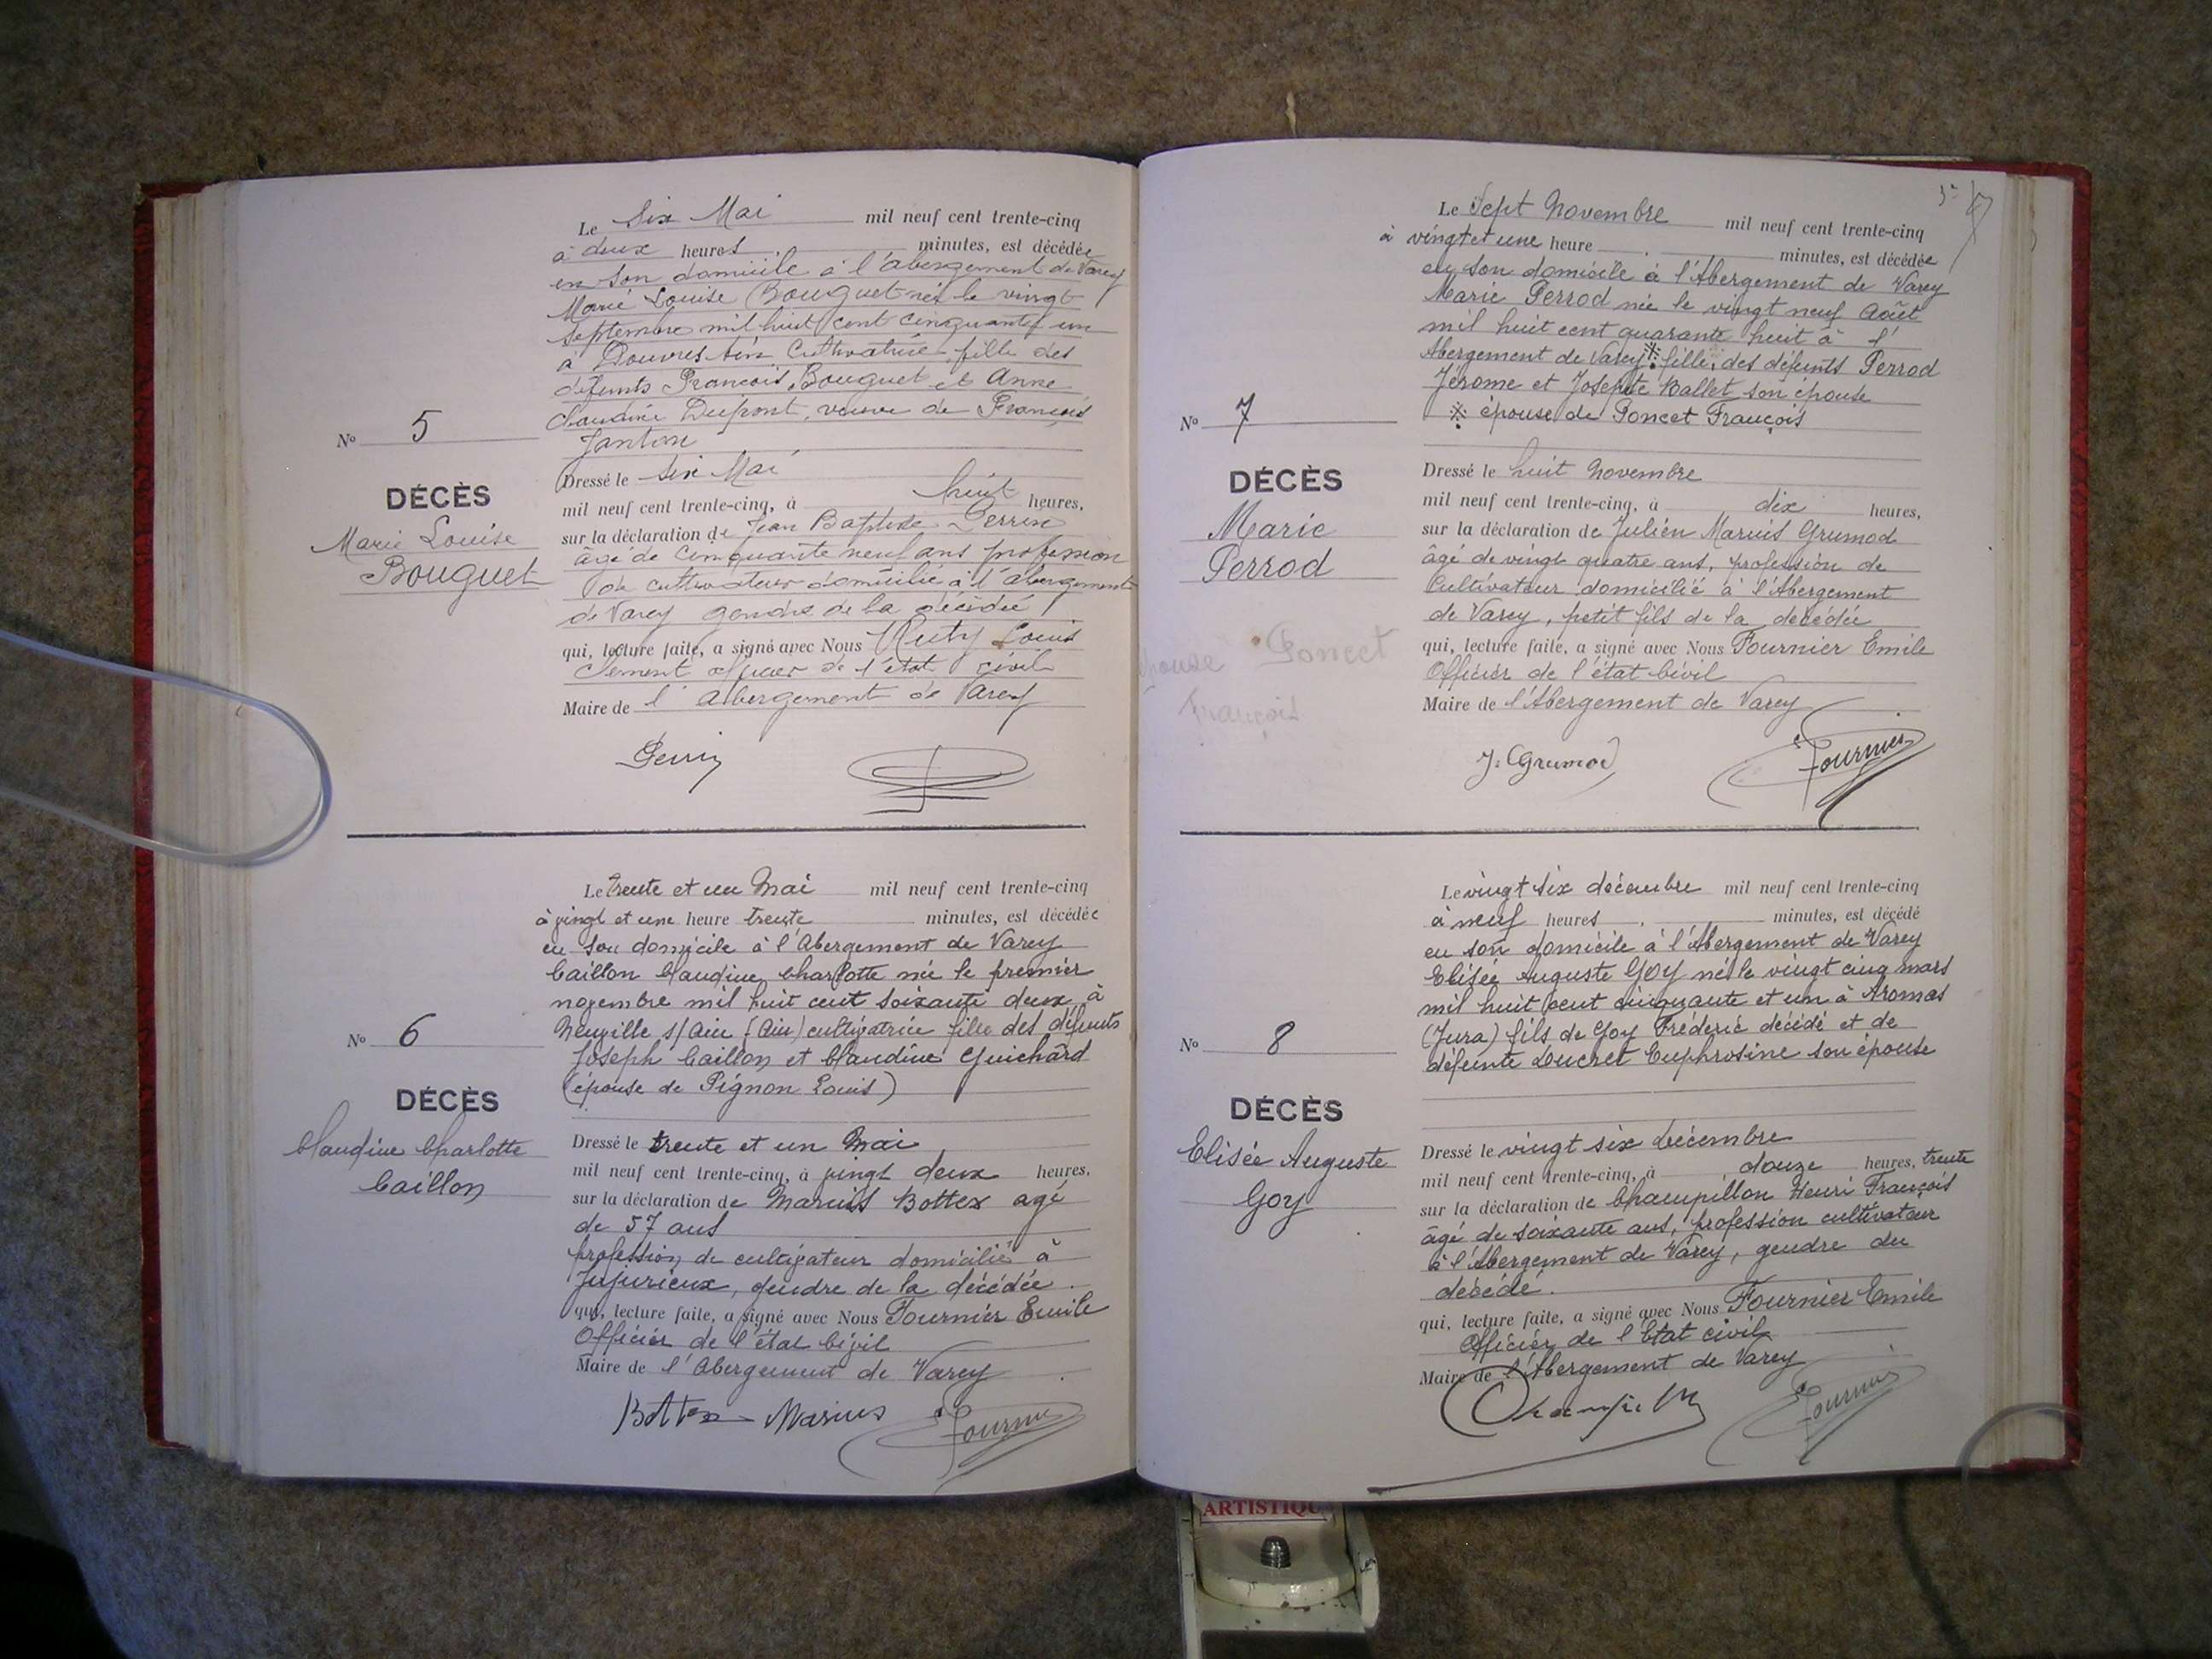 Le Six Mai mil neuf cent trente-cinq
à deux heures . minutes, est décédée
en son domicile à l'abergement de Varey
Marie Louise Bouguet née le vingt
septembre mil huit cent cinquante un
à Douvres Ain Cultivatrice fille des
défunts François Bouguet et Anne
Claudine Dupont, veuve de François
Janton
No 5
DÉCÈS
Marie Louise
Bouguet
Dressé le six Mai
mil neuf cent trente-cinq, à huit heures,
sur la déclaration de Jean Baptiste Perrin
âgé de cinquante neuf ans profession
de cultivateur domicilié à l'abergement
de Varey gendre de la décédée
qui, lecture faite, a signé avec Nous Ruty Louis
Clement officier de l'état civil
Maire de l'abergement de Varey
Perrin
Le trente et un Mai mil neuf cent trente-cinq
à vingt et une heure trente minutes, est décédée
en son domicile à l'Abergement de Varey
Caillon Claudine Charlotte née le premier
novembre mil huit cent soixante deux à
Neuville s/Ain (Ain) cultivatrice fille des défunts
Joseph Caillon et Claudine Guichard
(épouse de Pignon Louis)
No 6
DÉCÈS
Claudine Charlotte
Caillon
Dressé le trente et un Mai
mil neuf cent trente-cinq, à vingt deux heures,
sur la déclaration de Marius Bottex agé
de 57 ans
profession de cultivateur domicilié à
Jujurieux, gendre de la décédée.
qui, lecture faite, a signé avec Nous Fournier Emile
Officier de l'état Civil
Maire de l'Abergement de Varey
Bottex Marius Fournier
Le Sept Novembre mil neuf cent trente-cinq
à vingt et une heure . minutes, est décédée
en son domicile à l'Abergement de Varey
Marie Perrod née le vingt neuf Août
mil huit cent quarante huit à l'
Abergement de Varey ※ fille des défunts Perrod
Jérome et Josephte Ballet son épouse
※ épouse de Poncet François
No 7
DÉCÈS
Marie
Perrod
épouse Poncet
François
Dressé le huit Novembre
mil neuf cent trente-cinq, à dix heures,
sur la déclaration de Julien Marius Grumod
âgé de vingt quatre ans, profession de
Cultivateur domicilié à l'Abergement
de Varey, petit fils de la décédée
qui, lecture faite, a signé avec Nous Fournier Emile
Officier de l'état Civil
Maire de l'Abergement de Varey
J. Grumod Fournier
Le vingt six décembre mil neuf cent trente-cinq
à neuf heures . minutes, est décédé
en son domicile à l'Abergement de Varey
Elisée Auguste Goy né le vingt cinq mars
mil huit cent cinquante et un à Aromas
(Jura) fils de Goy Fréderic décédé et de
défunte Ducret Euphrosine son épouse
No 8
DÉCÈS
Elisée Auguste
Goy
Dressé le vingt six Décembre
mil neuf cent trente-cinq, à douze heures, trente
sur la déclaration de Champillon Henri François
âgé de soixante ans, profession cultivateur
à l'Abergement de Varey, gendre du
décédé.
qui, lecture faite, a signé avec Nous Fournier Emile
Officier de l'Etat civil
Maire de l'Abergement de Varey
Fournier